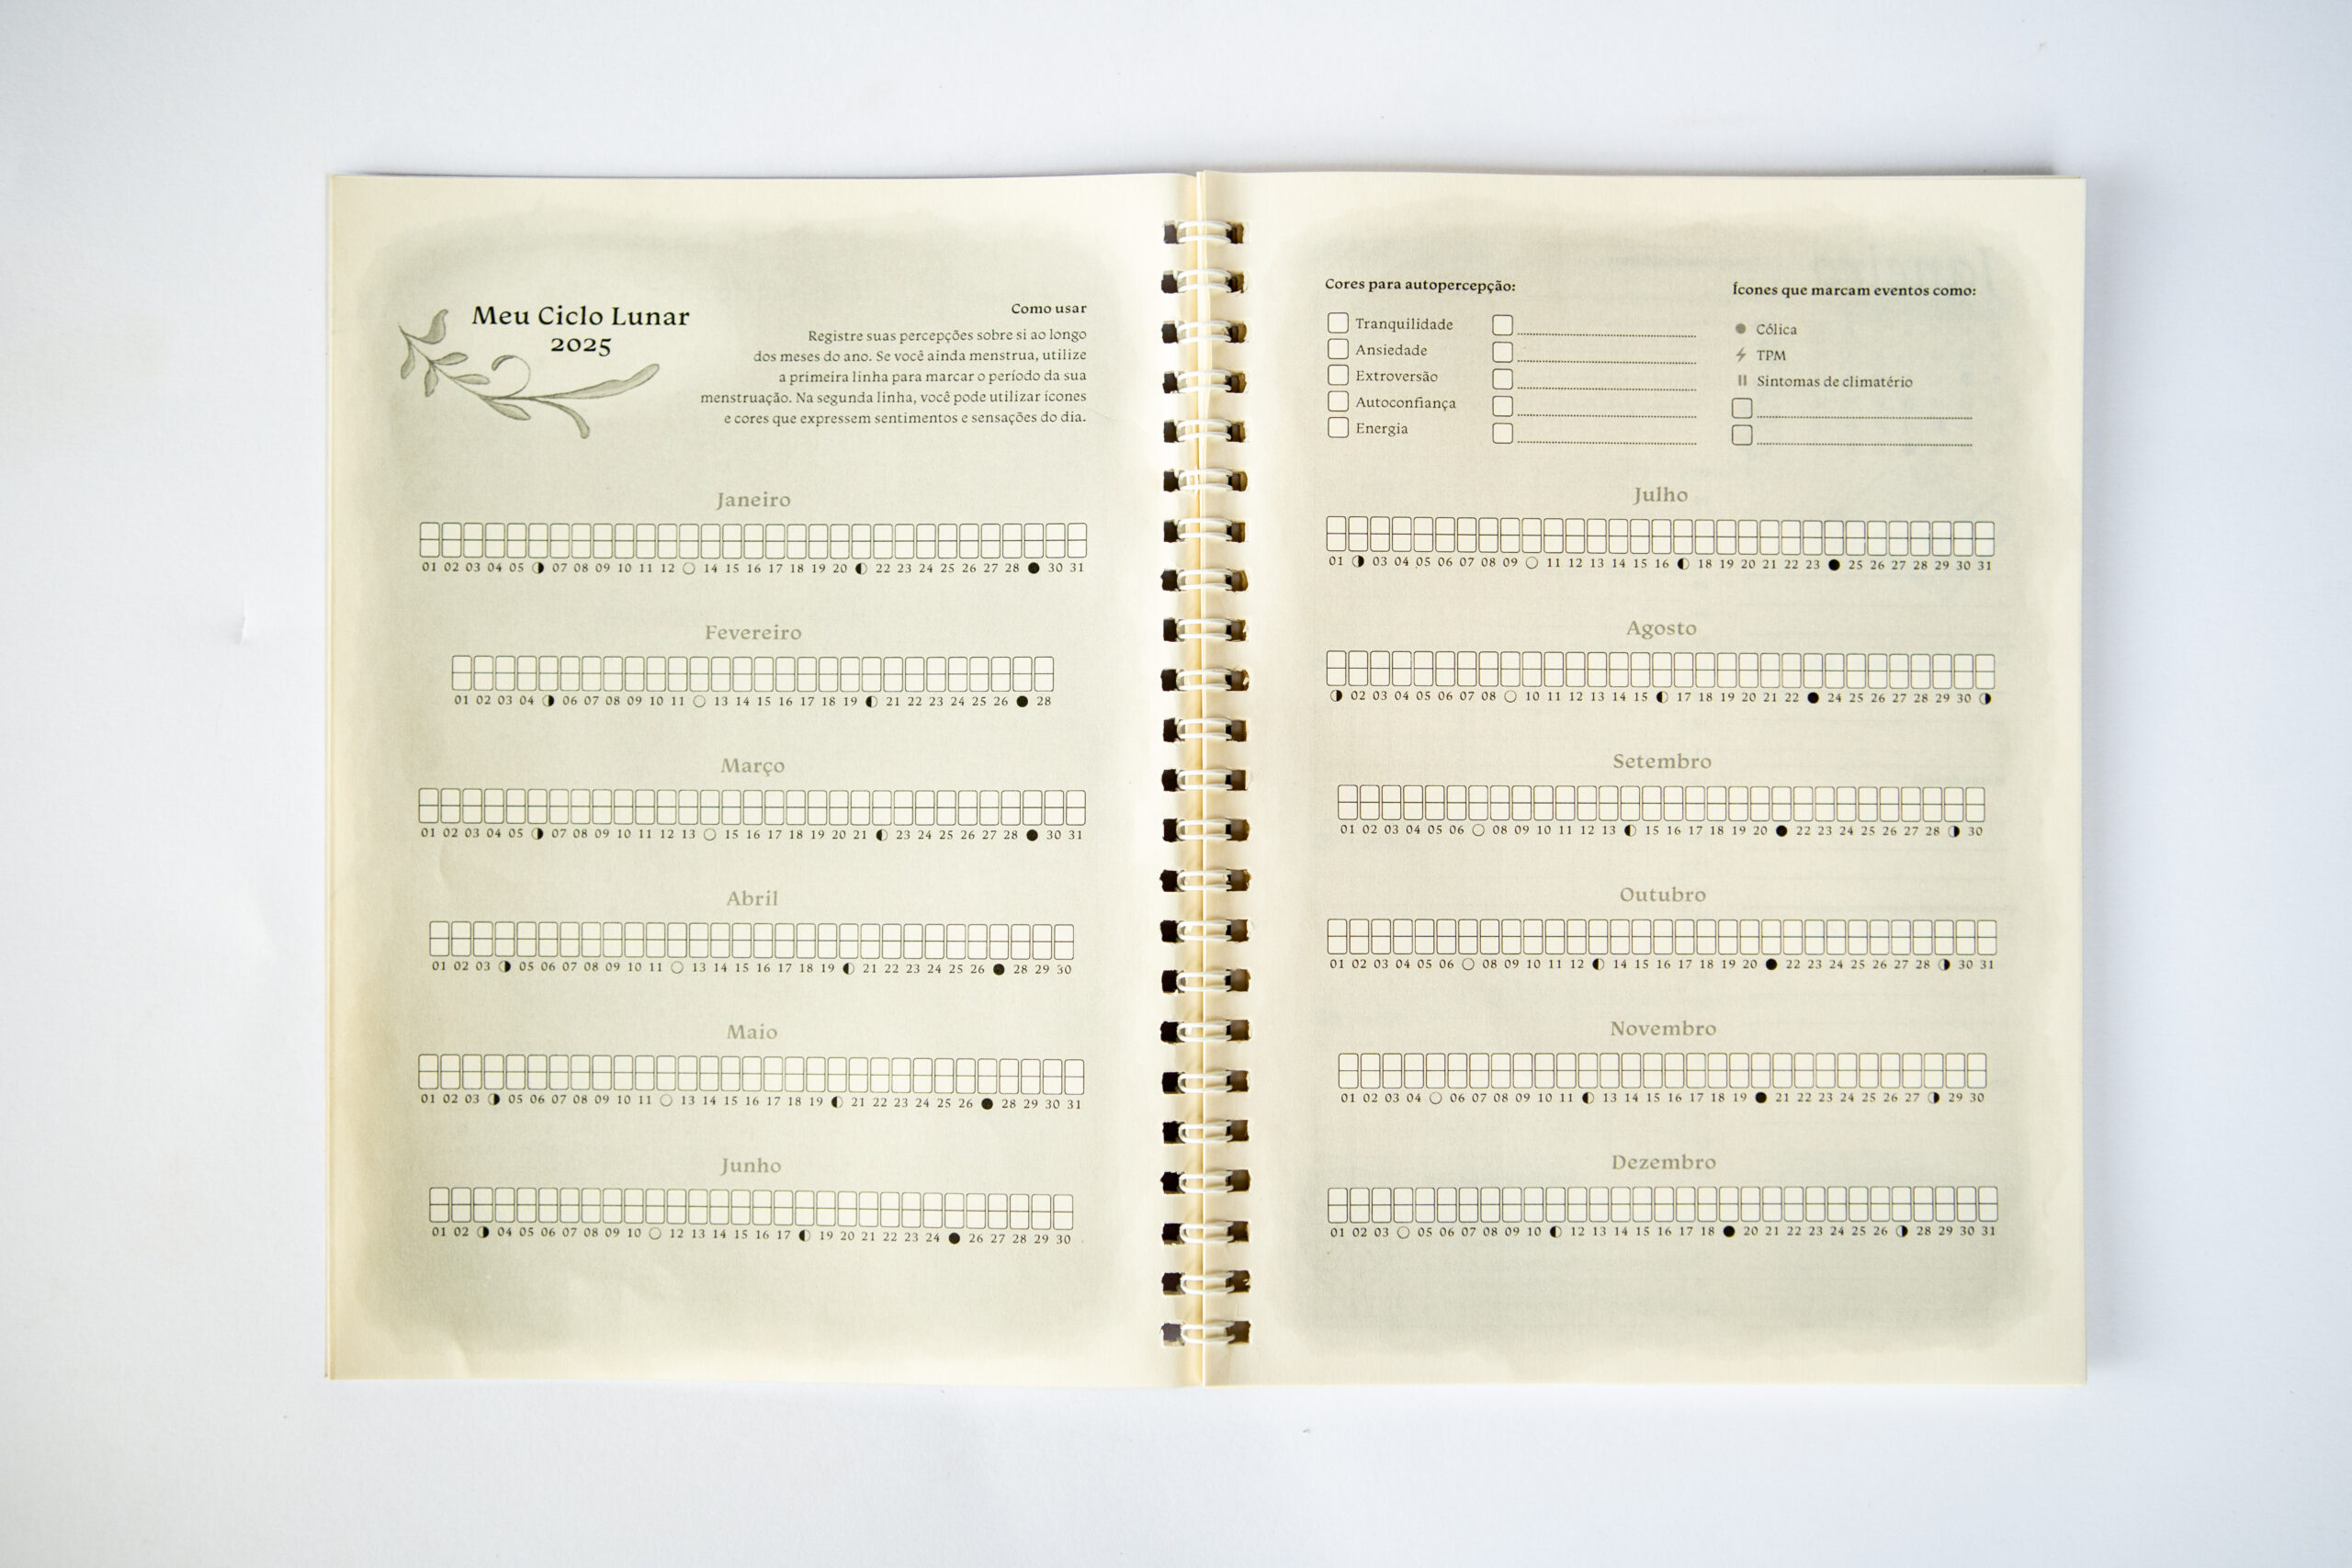 Meu Ciclo Lunar
2025
Como usar
Registre suas percepções sobre si ao longo
dos meses do ano. Se você ainda menstrua, utilize
a primeira linha para marcar o período da sua
menstruação. Na segunda linha, você pode utilizar ícones
e cores que expressem sentimentos e sensações do dia.
Janeiro
01 02 03 04 05 07 08 09 10 11 12 14 15 16 17 18 19 20 22 23 24 25 26 27 28 30 31
Fevereiro
01 02 03 04 06 07 08 09 10 11 13 14 15 16 17 18 19 21 22 23 24 25 26 28
Março
01 02 03 04 05 07 08 09 10 11 12 13 15 16 17 18 19 20 21 23 24 25 26 27 28 30 31
Abril
01 02 03 05 06 07 08 09 10 11 13 14 15 16 17 18 19 21 22 23 24 25 26 28 29 30
Maio
01 02 03 05 06 07 08 09 10 11 13 14 15 16 17 18 19 21 22 23 24 25 26 28 29 30 31
Junho
01 02 04 05 06 07 08 09 10 12 13 14 15 16 17 19 20 21 22 23 24 26 27 28 29 30
Cores para autopercepção:
Tranquilidade
Ansiedade
Extroversão
Autoconfiança
Energia
Ícones que marcam eventos como:
Cólica
TPM
Sintomas de climatério
Julho
01 03 04 05 06 07 08 09 11 12 13 14 15 16 18 19 20 21 22 23 25 26 27 28 29 30 31
Agosto
02 03 04 05 06 07 08 10 11 12 13 14 15 17 18 19 20 21 22 24 25 26 27 28 29 30
Setembro
01 02 03 04 05 06 08 09 10 11 12 13 15 16 17 18 19 20 22 23 24 25 26 27 28 30
Outubro
01 02 03 04 05 06 08 09 10 11 12 14 15 16 17 18 19 20 22 23 24 25 26 27 28 30 31
Novembro
01 02 03 04 06 07 08 09 10 11 13 14 15 16 17 18 19 21 22 23 24 25 26 27 29 30
Dezembro
01 02 03 05 06 07 08 09 10 12 13 14 15 16 17 18 20 21 22 23 24 25 26 28 29 30 31